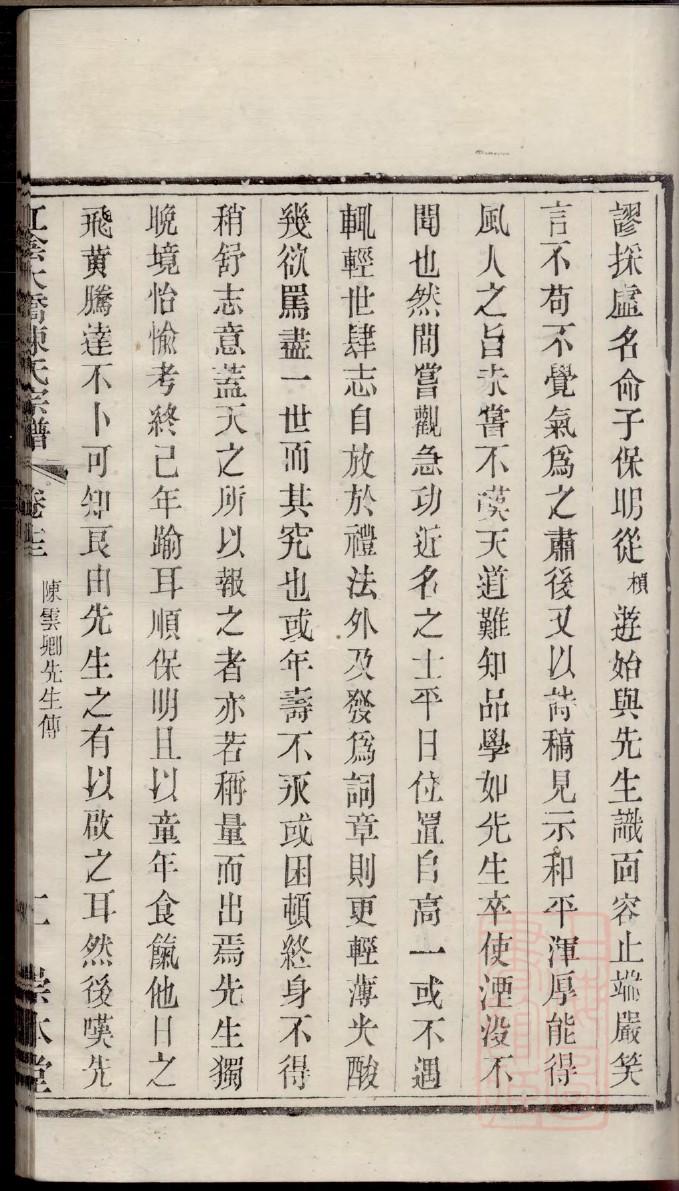 謬採虛名命子保明從楨遊始與先生識面容止端嚴笑
言不苟不覺氣爲之肅後又以詩稿見示和平渾厚能得
風人之旨未嘗不嘆天道難知品學如先生卒使湮沒不
聞也然間嘗觀急功近名之士平日位置自高一或不遇
輒輕世肆志自放於禮法外及發爲詞章則更輕薄尖酸
幾欲罵盡一世而其究也或年壽不永或困頓終身不得
稍舒志意蓋天之所以報之者亦若稱量而出焉先生獨
晚境怡愉考終己年踰耳順保明且以童年食餼他日之
飛黃騰達不卜可知良由先生之有以啟之耳然後嘆先
江陰大橋陳氏宗譜
卷十三
陳雲卿先生傳
二
崇本堂